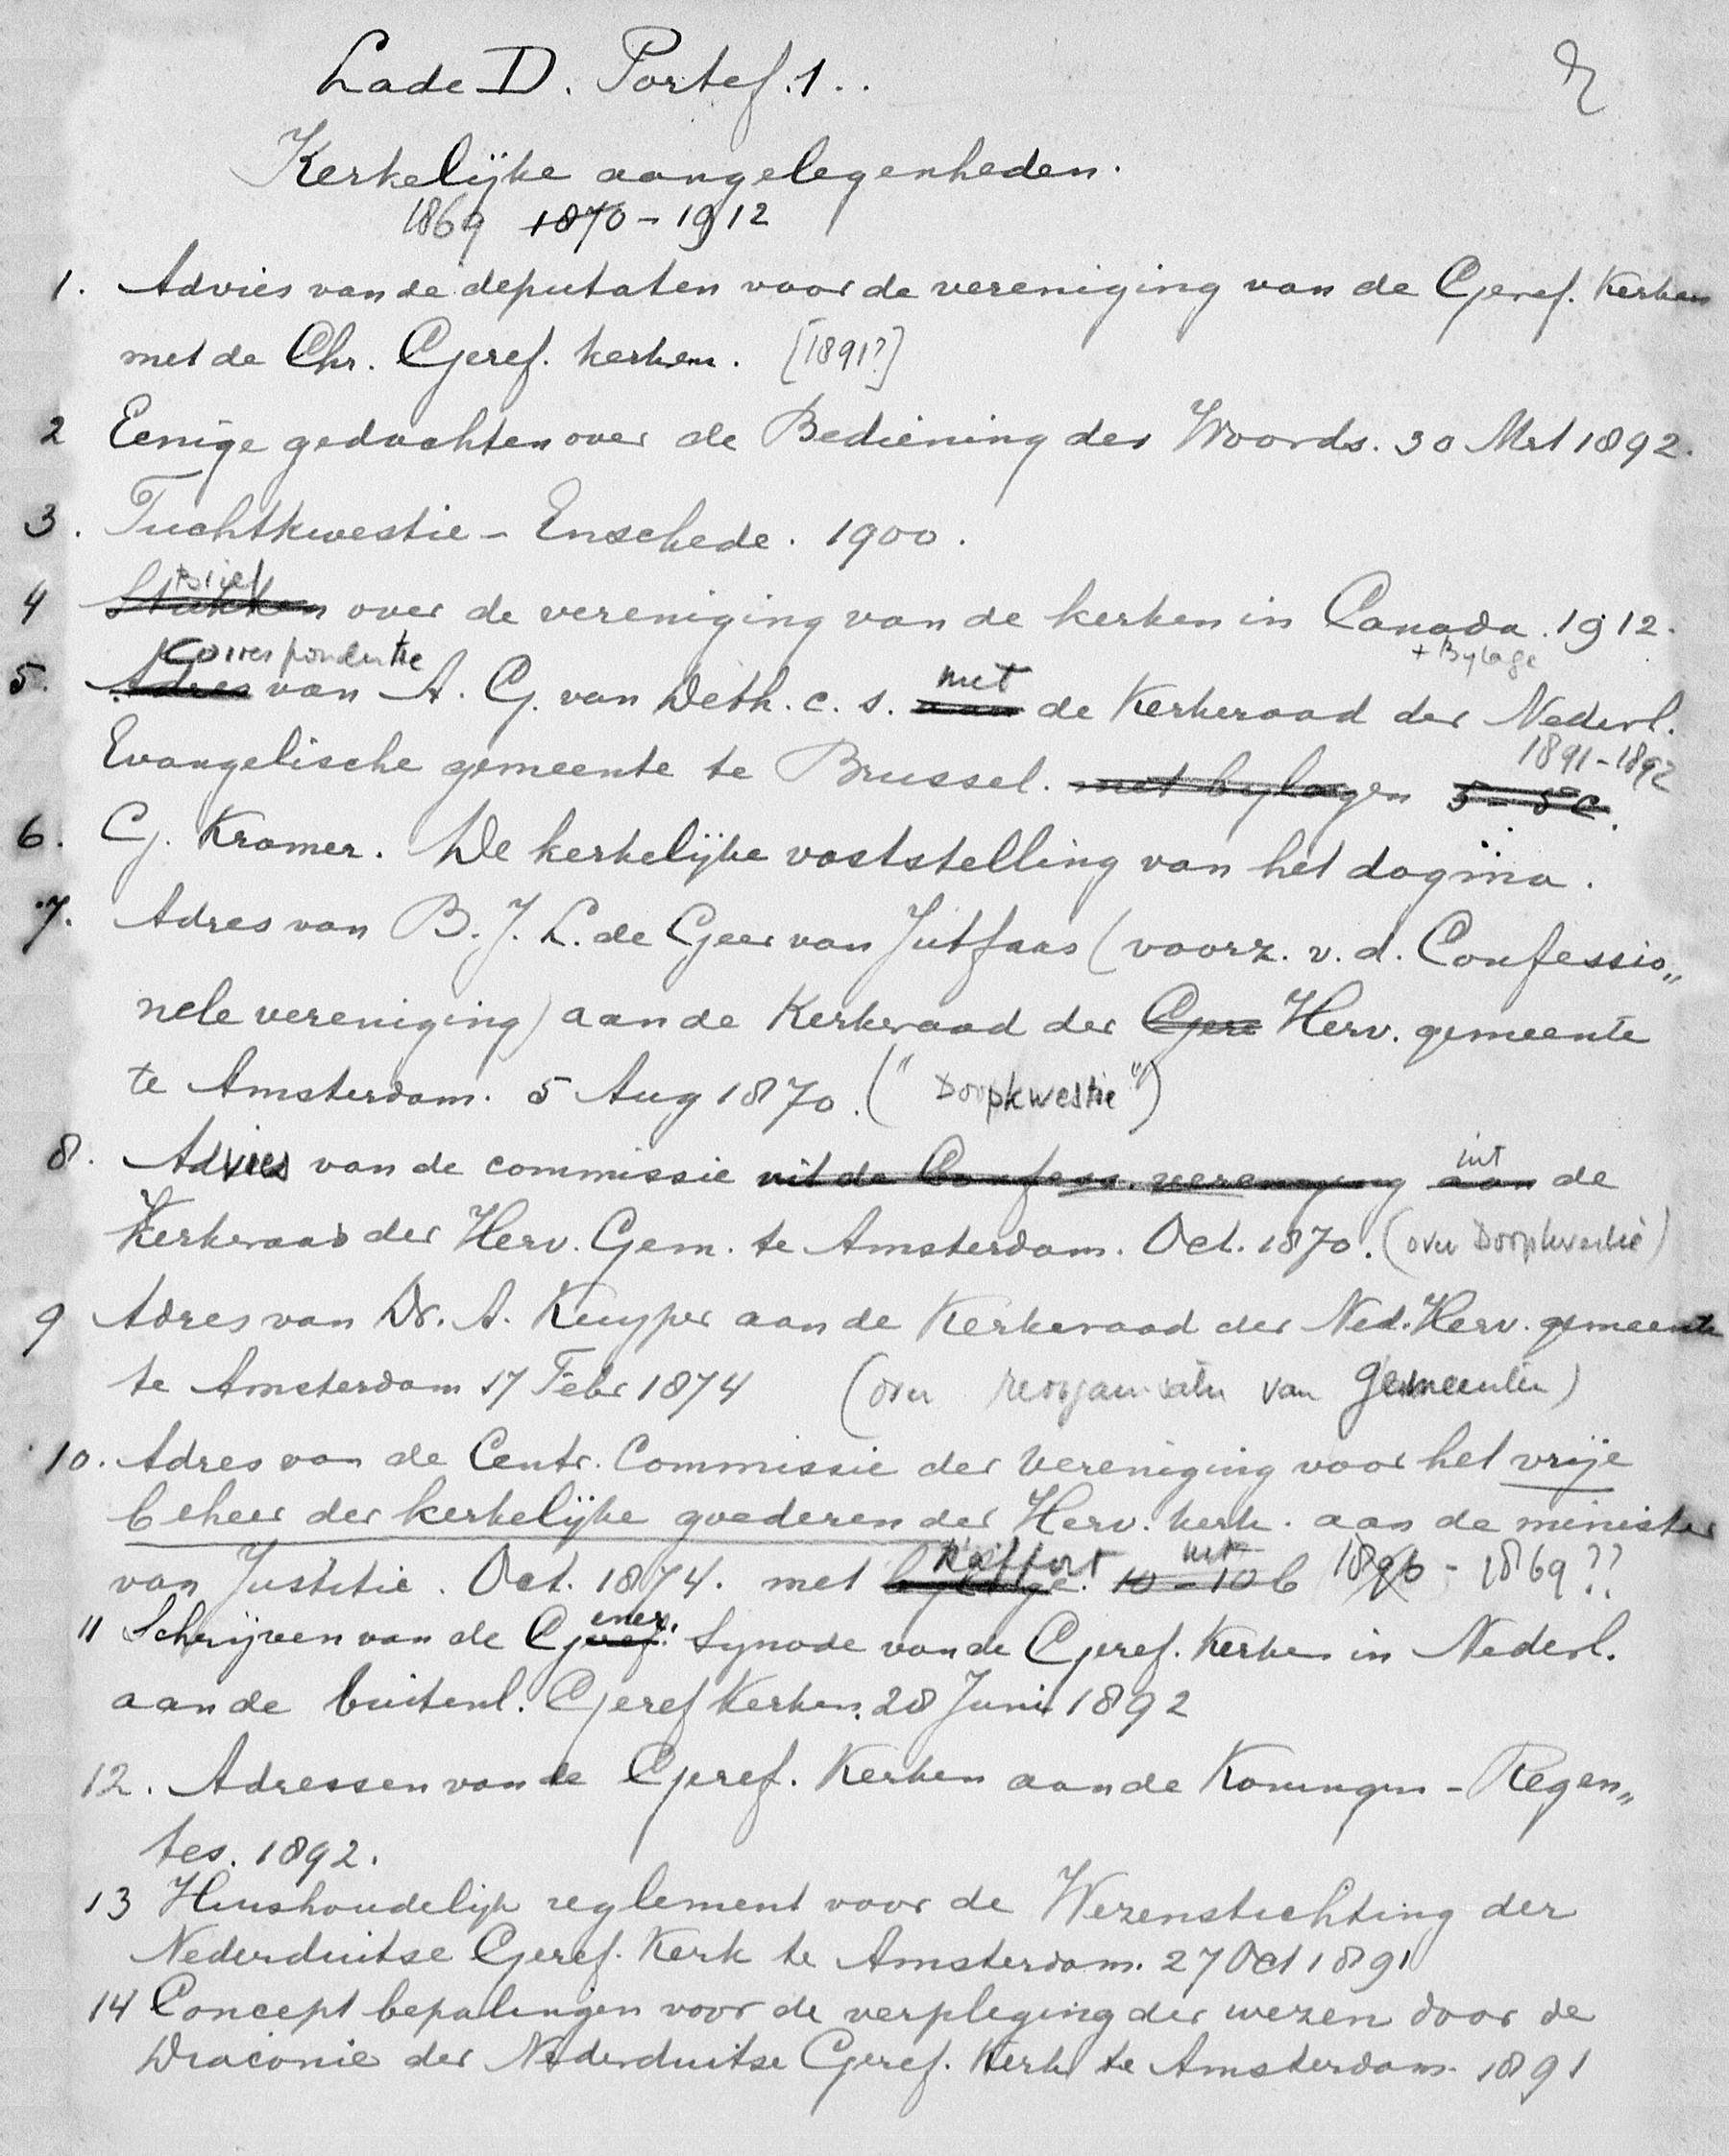 Lade D. Portef. 1..
Kerkelijke aangelegenheden.
1869 1870 - 1912
1. Advies van de deputaten voor de vereniging van de Geref. Kerken
met de Chr. Geref. kerken. [1891?]
2 Eenige gedachten over de Bediening des Woords. 30 Mrt 1892.
3. Tuchtkwestie - Enschede. 1900.
Brief
4 Stukken over de vereniging van de kerken in Canada. 1912.
+ Bylage
Correspondentie
5. Adres van A. G. van Deth. c. s. aan met de Kerkeraad der Nederl.
1891-1892
Evangelische gemeente te Brussel. met bylagen 5 - 5c.
6. G. Kramer. De kerkelijke vaststelling van het dogma.
7. Adres van B. J. L. de Geer van Jutfaas (voorz. v. d. Confessio„
nele vereniging) aan de Kerkeraad der Gere Herv. gemeente
te Amsterdam. 5 Aug 1870. ("Doopkwestie")
8. Advies van de commissie uit de Confess. vereniging aan uit de
Kerkeraad der Herv. Gem. te Amsterdam. Oct. 1870. (over Doopkwestie)
9 Adres van Dr. A. Kuyper aan de Kerkeraad der Ned. Herv. gemeente
te Amsterdam 17 Febr 1874 (over reorganisatie van Gemeenten)
10. Adres van de Centr. Commissie der vereniging voor het vrije
beheer der kerkelijke goederen der Herv. kerk. aan de minister
van Justitie. Oct. 1874. met bylage. Rapport 10 - 10b uit 1896 - 1869??
11 Schrijven van de Geref. ener. Synode van de Geref. Kerken in Nederl.
aan de buitenl. Geref Kerken. 28 Juni 1892
12. Adressen van de Geref. Kerken aan de Koningin - Regen„
tes. 1892.
13 Huishoudelijk reglement voor de Wezenstichting der
Nederduitse Geref. Kerk te Amsterdam. 27 Oct 1891
14 Concept bepalingen voor de verpleging der wezen door de
Diaconie der Nederduitse Geref. Kerk te Amsterdam. 1891